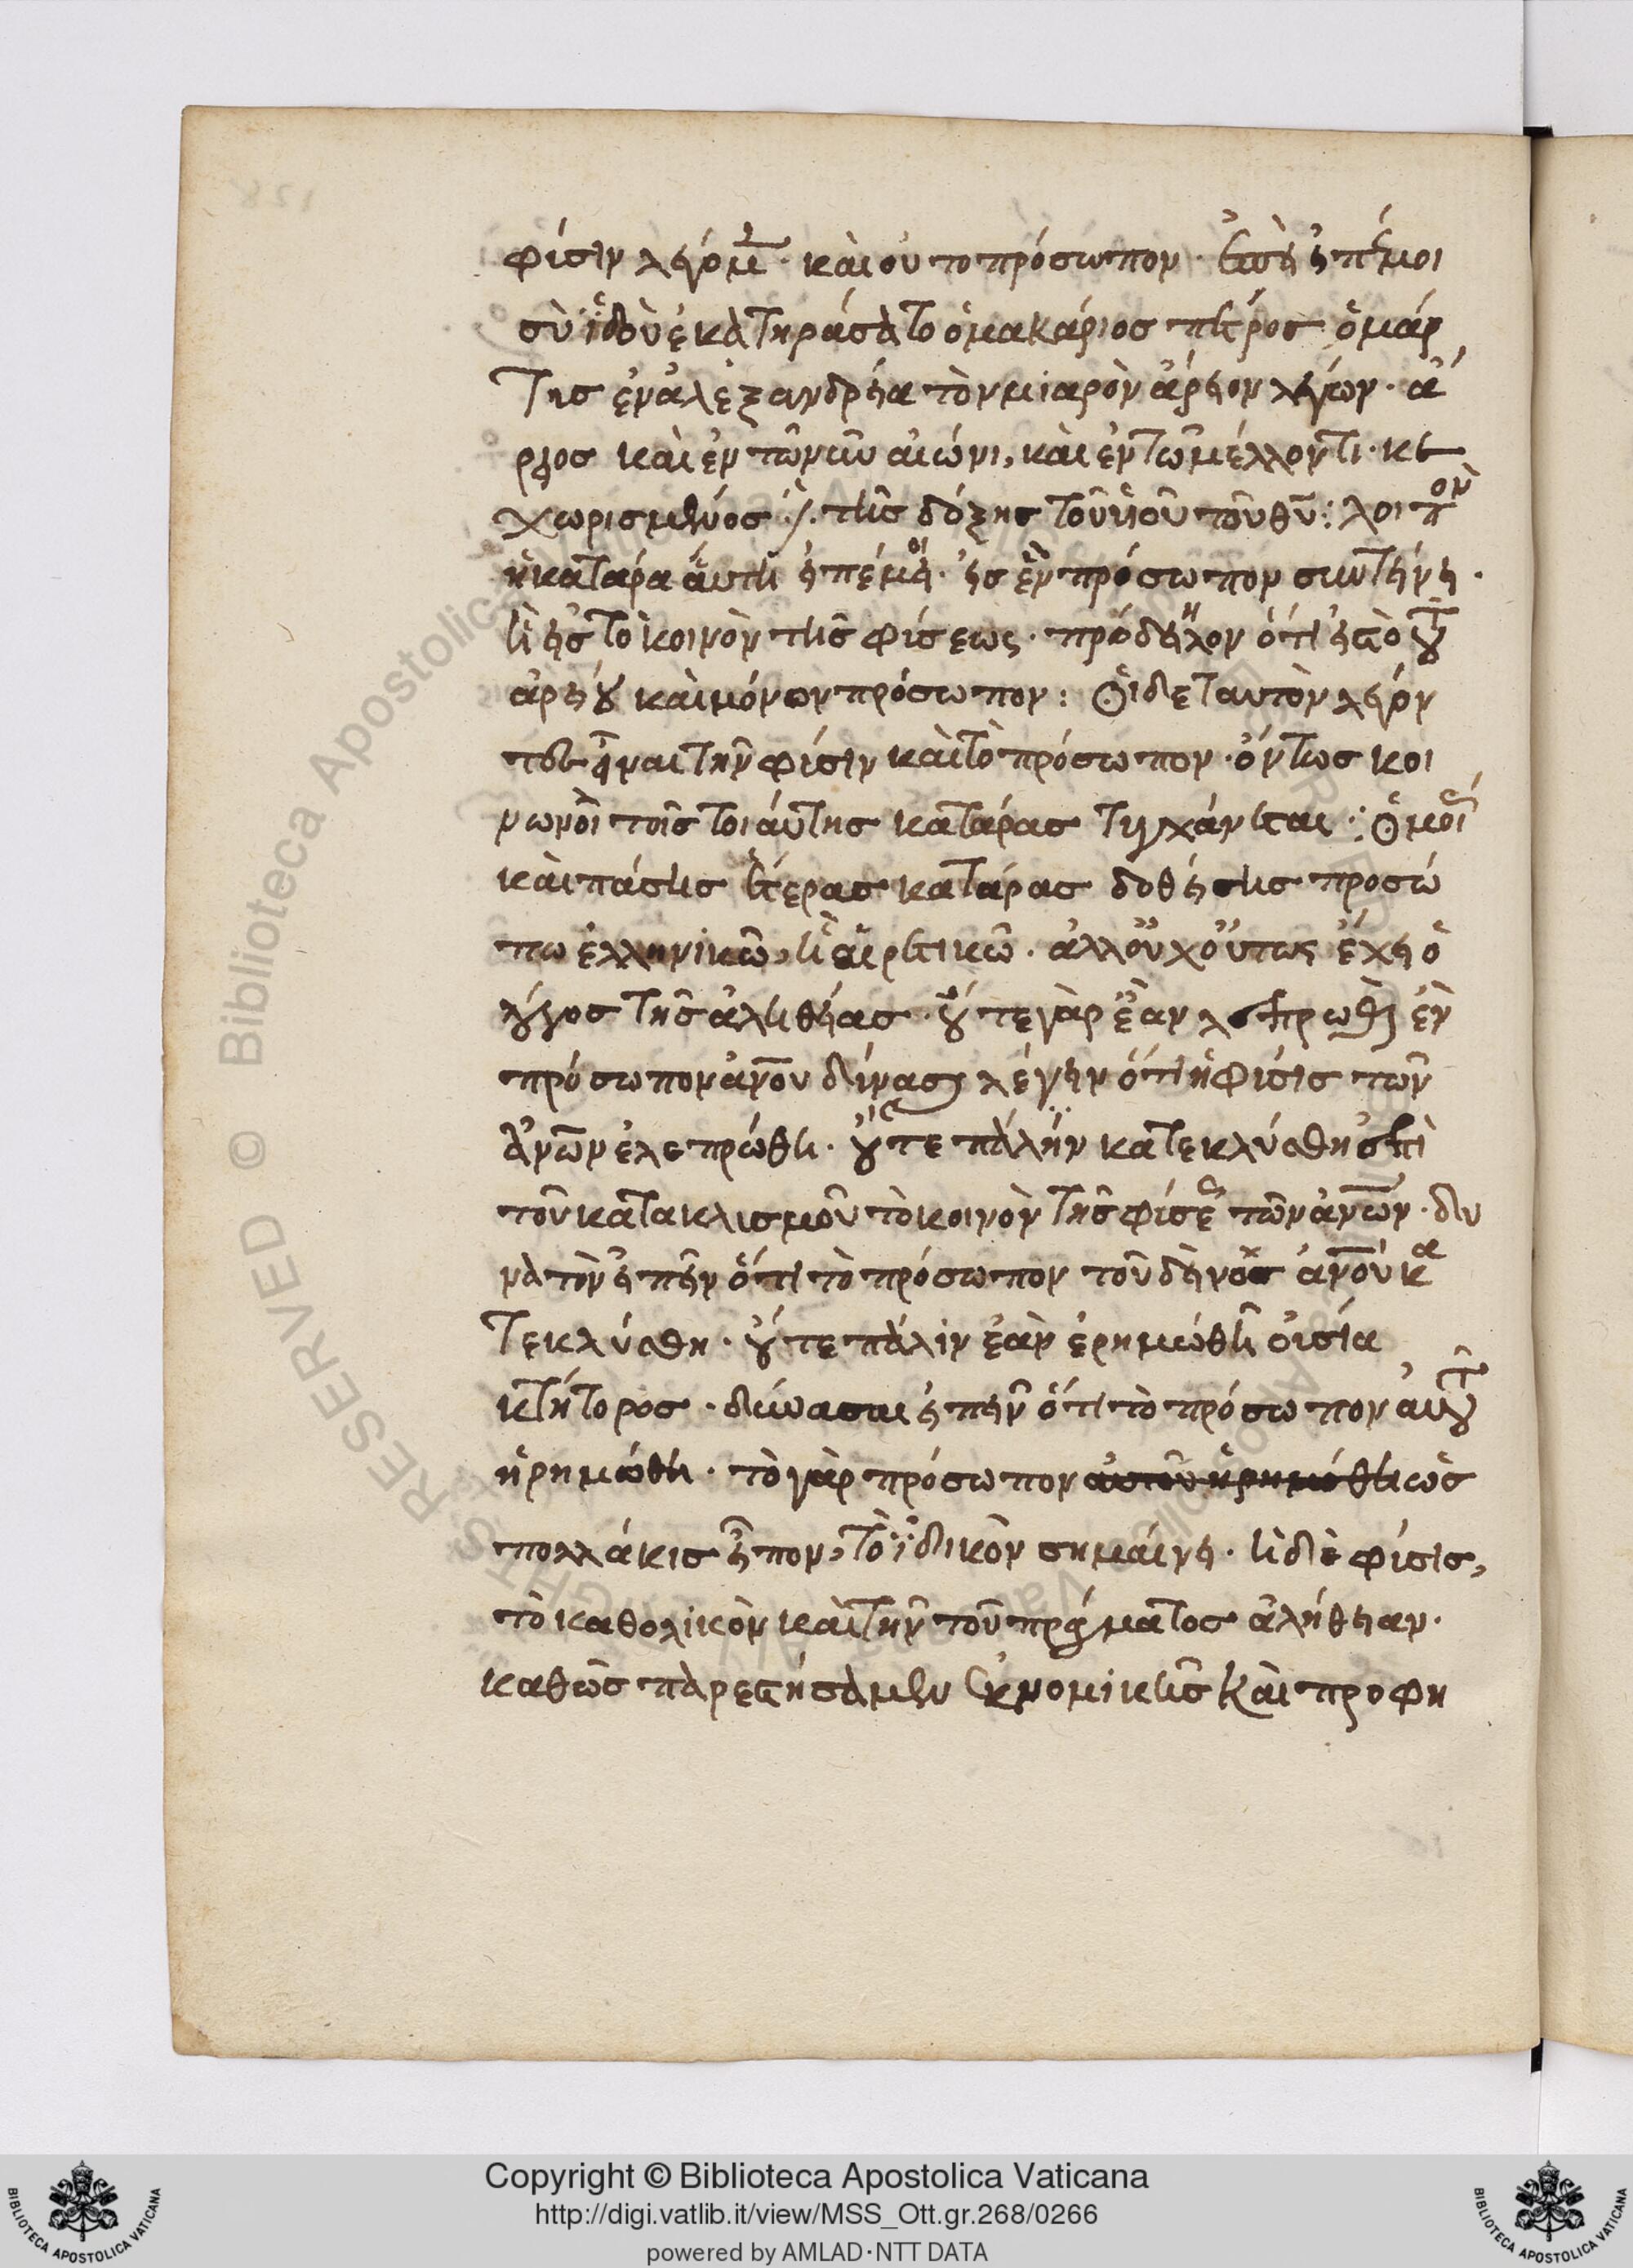 φίσιν λέγομ καὶ οὐ το πρόσωπον · ἐπεὶ εἰπέ μοι
σὺ ἰδοὺ ἐκατηράσατο ὁ μακάριος πέτρος ὁ μάρ
της ἐν ἀλεξανδρεία τὸν μιαρὸν ἄρειον λέγων · ἄ
ρειος καὶ ἐν τῶ νῦν αἰώνι, καὶ ἐν τῶ μέλλοντι · κε
χωρισμένος ./. τῆς δόξης τοῦ υἱοῦ τοῦ θυ : λοιπὸν
ἡ κατάρα αὕτη εἰπέ μοι · εἰς ἓν πρόσωπον συντείνει ·
ἢ εἰς τὸ κοινὸν τῆς φίσεως · πρόδηλον ὁτι εἰς τὸ τοῦ
ἀρείου καὶ μόνων πρόσωπον : Οἱ δε ταυτὸν λέγον
τες εἶναι τὴν φίσιν καὶ τὸ πρόσωπον · ὄντως κοι
νωνοὶ τοῖς τοιάυτης κατάρας τυγχάνεται : Ὁμοί
καὶ πάσης ἑτέρας κατάρας δοθείσης προσώ
πω ἑλληνικῶ, ἢ αἱρετικῶ · ἀλλ οὐχ οὕτως ἔχει ὁ
λόγος τῆς ἀληθείας · οὔτε γὰρ ἐὰν λεπρωθῆ ἓν
πρόσωπον ἀνου δίνασαι λέγειν ὅτι ἡ φίσις τῶν
ἀνων ἐλεπρώθη · οὔτε πάλην κατεκλύσθη ἐπὶ
τοῦ κατακλισμοῦ τὸ κοινὸν τῆς φίσε τῶν ἀνων · δυ
νατὸν εἰπεῖν ὅτι τὸ πρόσωπον τοῦ δεῖνος ἀνου κα
τεκλύσθη · οὔτε πάλιν ἐὰν ἐρημώθη οὐσία
κτήτορος · δύνασαι εἰπεῖν ὅτι τὸ πρόσωπον αυτοῦ
ἠρημώθη · τὸ γὰρ πρόσωπον αὐτοῦ ἠρημόθη ὡς
πολλάκις εἶπον, τὸ ἰδικὸν σημαίνει · ἡ δὲ φίσις,
τὸ καθολικὸν καὶ τὴν τοῦ πράγματος ἀλήθειαν ·
καθὼς παρεστήσαμεν ἐκ νομικῆς καὶ προφη
Copyright © Biblioteca Apostolica Vaticana
http://digi.vatlib.it/view/MSS_Ott.gr.268/0266
powered by AMLAD · NTT DATA